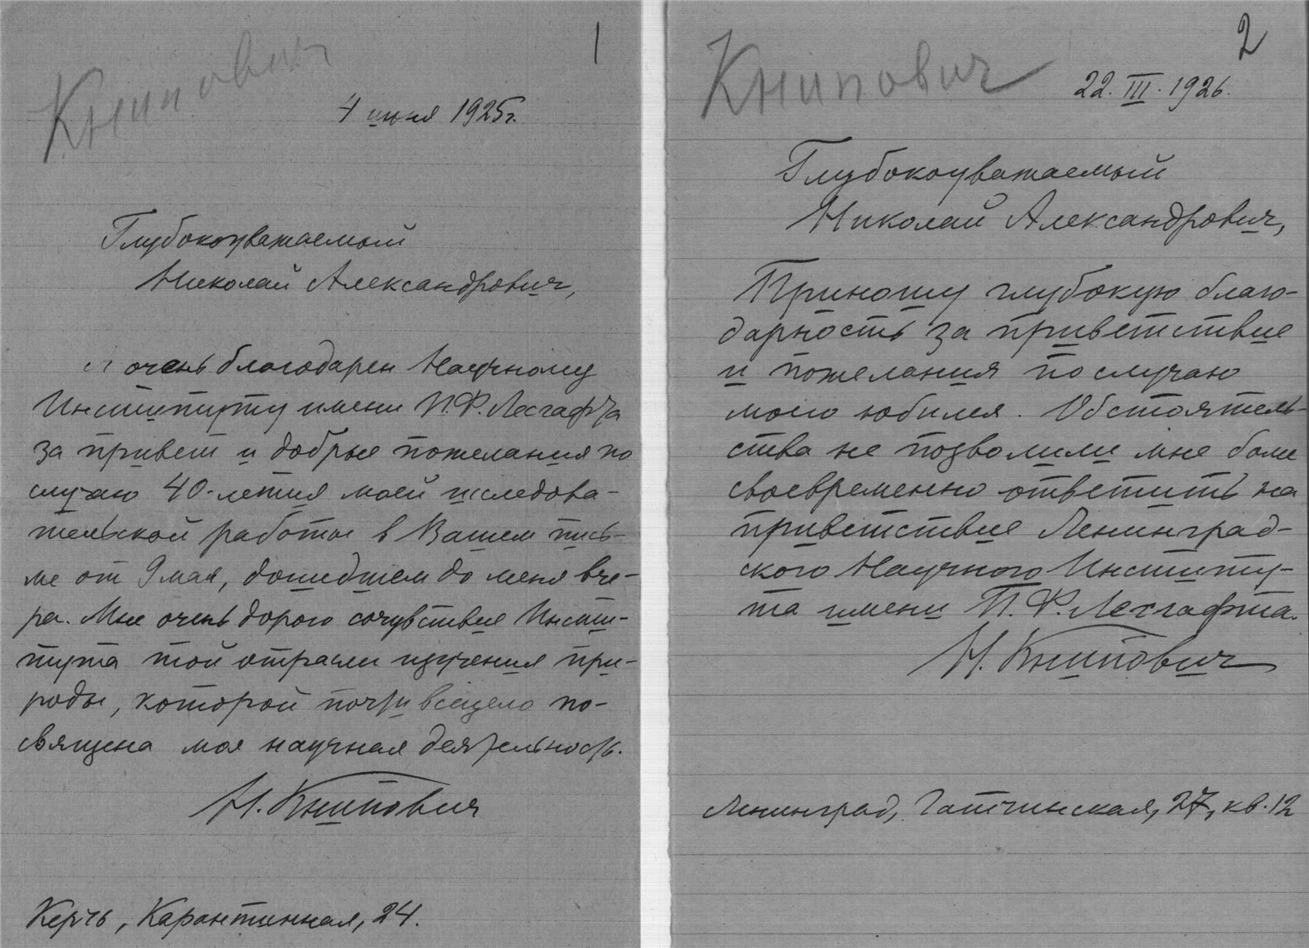 Книпович
1
4 июня 1925г.
Глубокоуважаемый
Николай Александрович,
Я очень благодарен Научному
Институту имени П.Ф. Лесгафта
за привет и добрые пожелания по
случаю 40-летия моей исследова-
тельской работы в Вашем пись-
ме от 9 мая, дошедшем до меня вче-
ра. Мне очень дорого сочувствие Инсти-
тута той отрасли изучения при-
роды, которой почти всецело по-
священа моя научная деятельность.
Н. Книпович
Керчь, Карантинная, 24.
Книпович
2
22. III. 1926.
Глубокоуважаемый
Николай Александрович,
Приношу глубокую благо-
дарность за приветствие
и пожелания по случаю
моего юбилея. Обстоятель-
ства не позволили мне более
своевременно ответить на
приветствие Ленинград-
ского Научного Институ-
та имени П. Ф. Лесгафта.
Н. Книпович
Ленинград, Гатчинская, 27, кв. 12